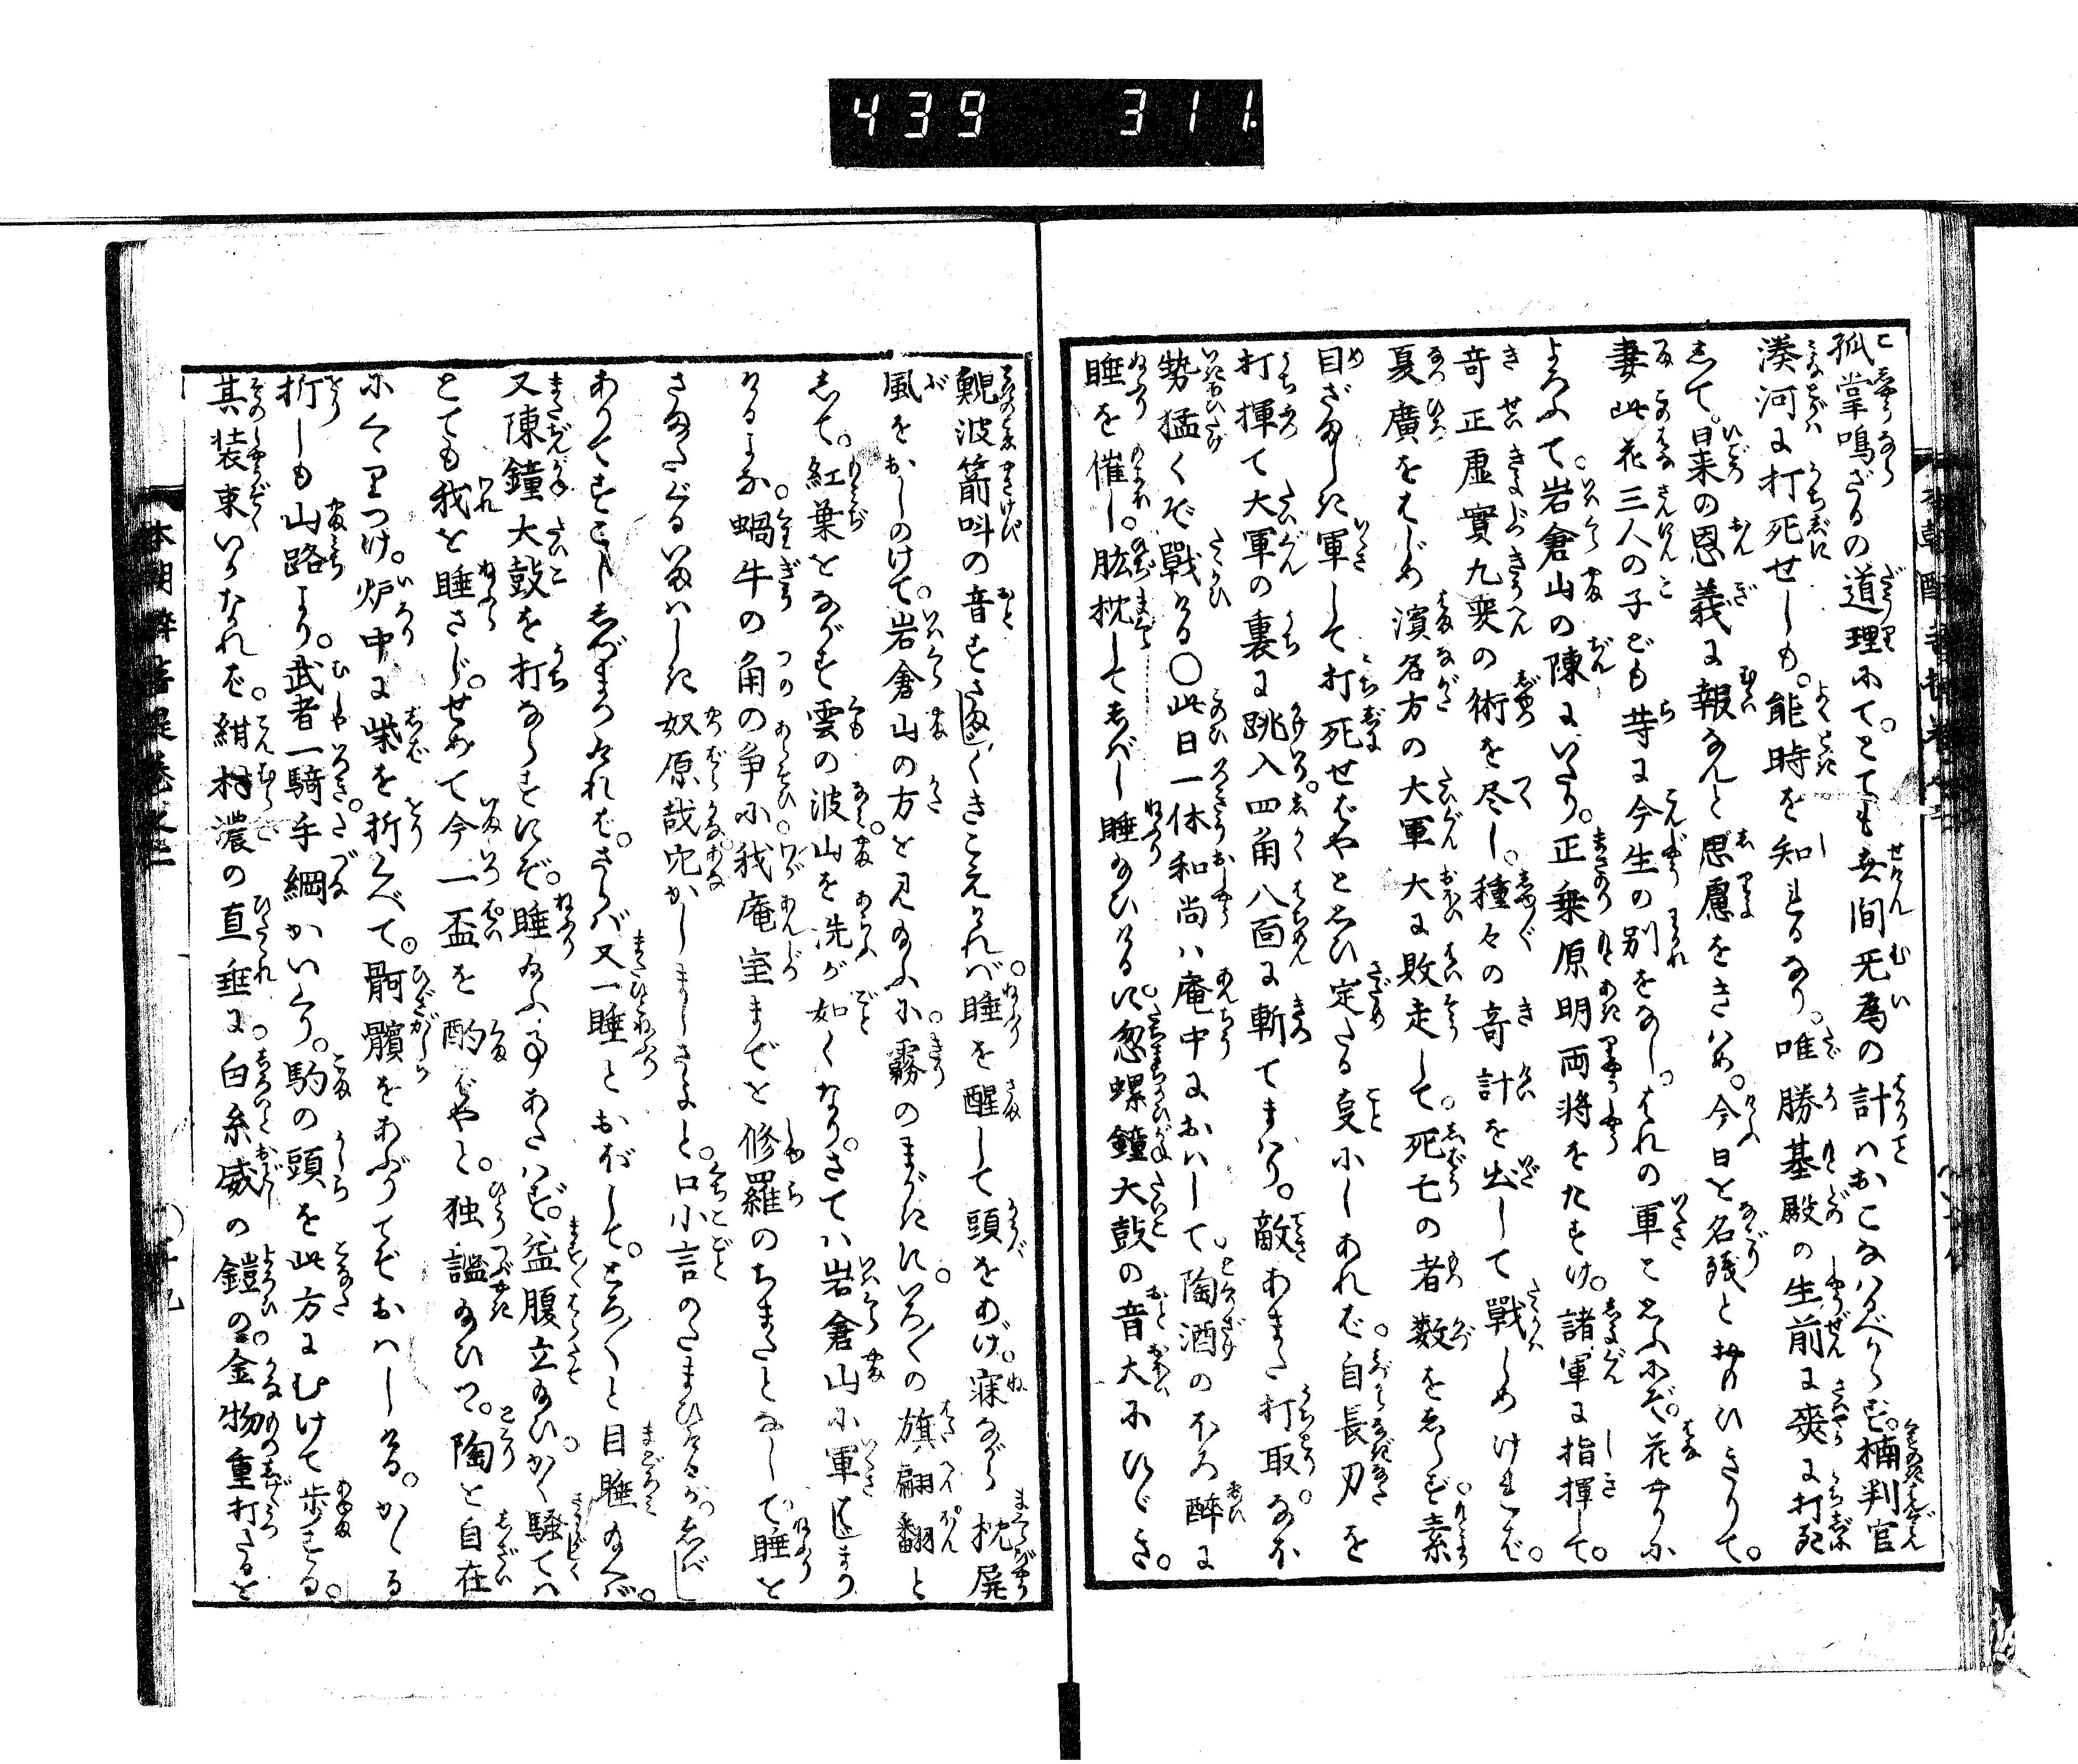 439 311.
孤掌鳴ざるの道理にて。とても無間无為の計ハおこなハるべからず。楠判官
湊河に打死せしも。能時を知れるなり。唯勝基殿の生前に爽に打死
して。日来の恩義に報なんと思慮をきハめ。今日を名残とおもひきりて。
妻此花三人の子ども等に今生の別をなし。それの軍と思ふにぞ。花やかに
よろふて。岩倉山の陳にいたり。正乗原明両将をたすけ。諸軍に指揮して。
奇正虚實九変の術を尽し。種々の奇計を出して戰しめければ。
夏廣をはじめ濱名方の大軍大に敗走して。死亡の者数をしらず。素
目ざましき軍して打死せばやと思ひ定たる事にしあれば。自長刀を
打揮て大軍の裏に跳入四角八面に斬てまハり。敵あまた打取。なほ
勢猛くぞ戰ける〇此日一休和尚ハ庵中におハして。陶酒のほろ醉に
睡を催し。肱枕してしばし睡ゐひけるに。忽螺鐘大鼓の音大にひゞき。
鯢波箭叫の音すさまじくきこえければ睡を醒して頭をあげ。寐ながら枕屏
風をおしのけて。岩倉山の方を見給ふに。霧のまがきに。いろ〱の旗翩翻と
して。紅葉をながす雲の波山を洗が如くなり。さてハ岩倉山に軍はじまり
けるよな。蝸牛の角の争に我庵室までを修羅のちまたとなして。睡を
さまたぐるいまハしき奴原哉穴かしましさよと。口小言のたまひけるが。しばし
ありてすこししづまりければ。さらバ又一睡とおぼして。とろ〱と目睡給へバ。
又陳鐘大鼓を打ならすにぞ。睡給ふ事あたハず。益腹立給ひ。かく騒てハ
とても我を睡さじ。せめて今一盃を酌ばやと。独謳給ひつ。陶を自在
にくゝりつけ。炉中に柴を折くべて。骬髕をあぶりてぞおハしける。かゝる
折しも山路より。武者一騎手綱かいくり。駒の頭を此方にむけて歩する。
其装束いかなれば。紺村濃の直垂に。白糸威の鎧の。金物重打たるを
本朝醉菩提巻之三